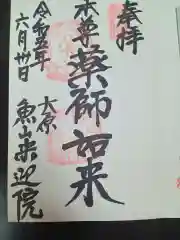 奉拝
本尊
薬師如来
令和五年
六月卅日
大原
魚山来迎院